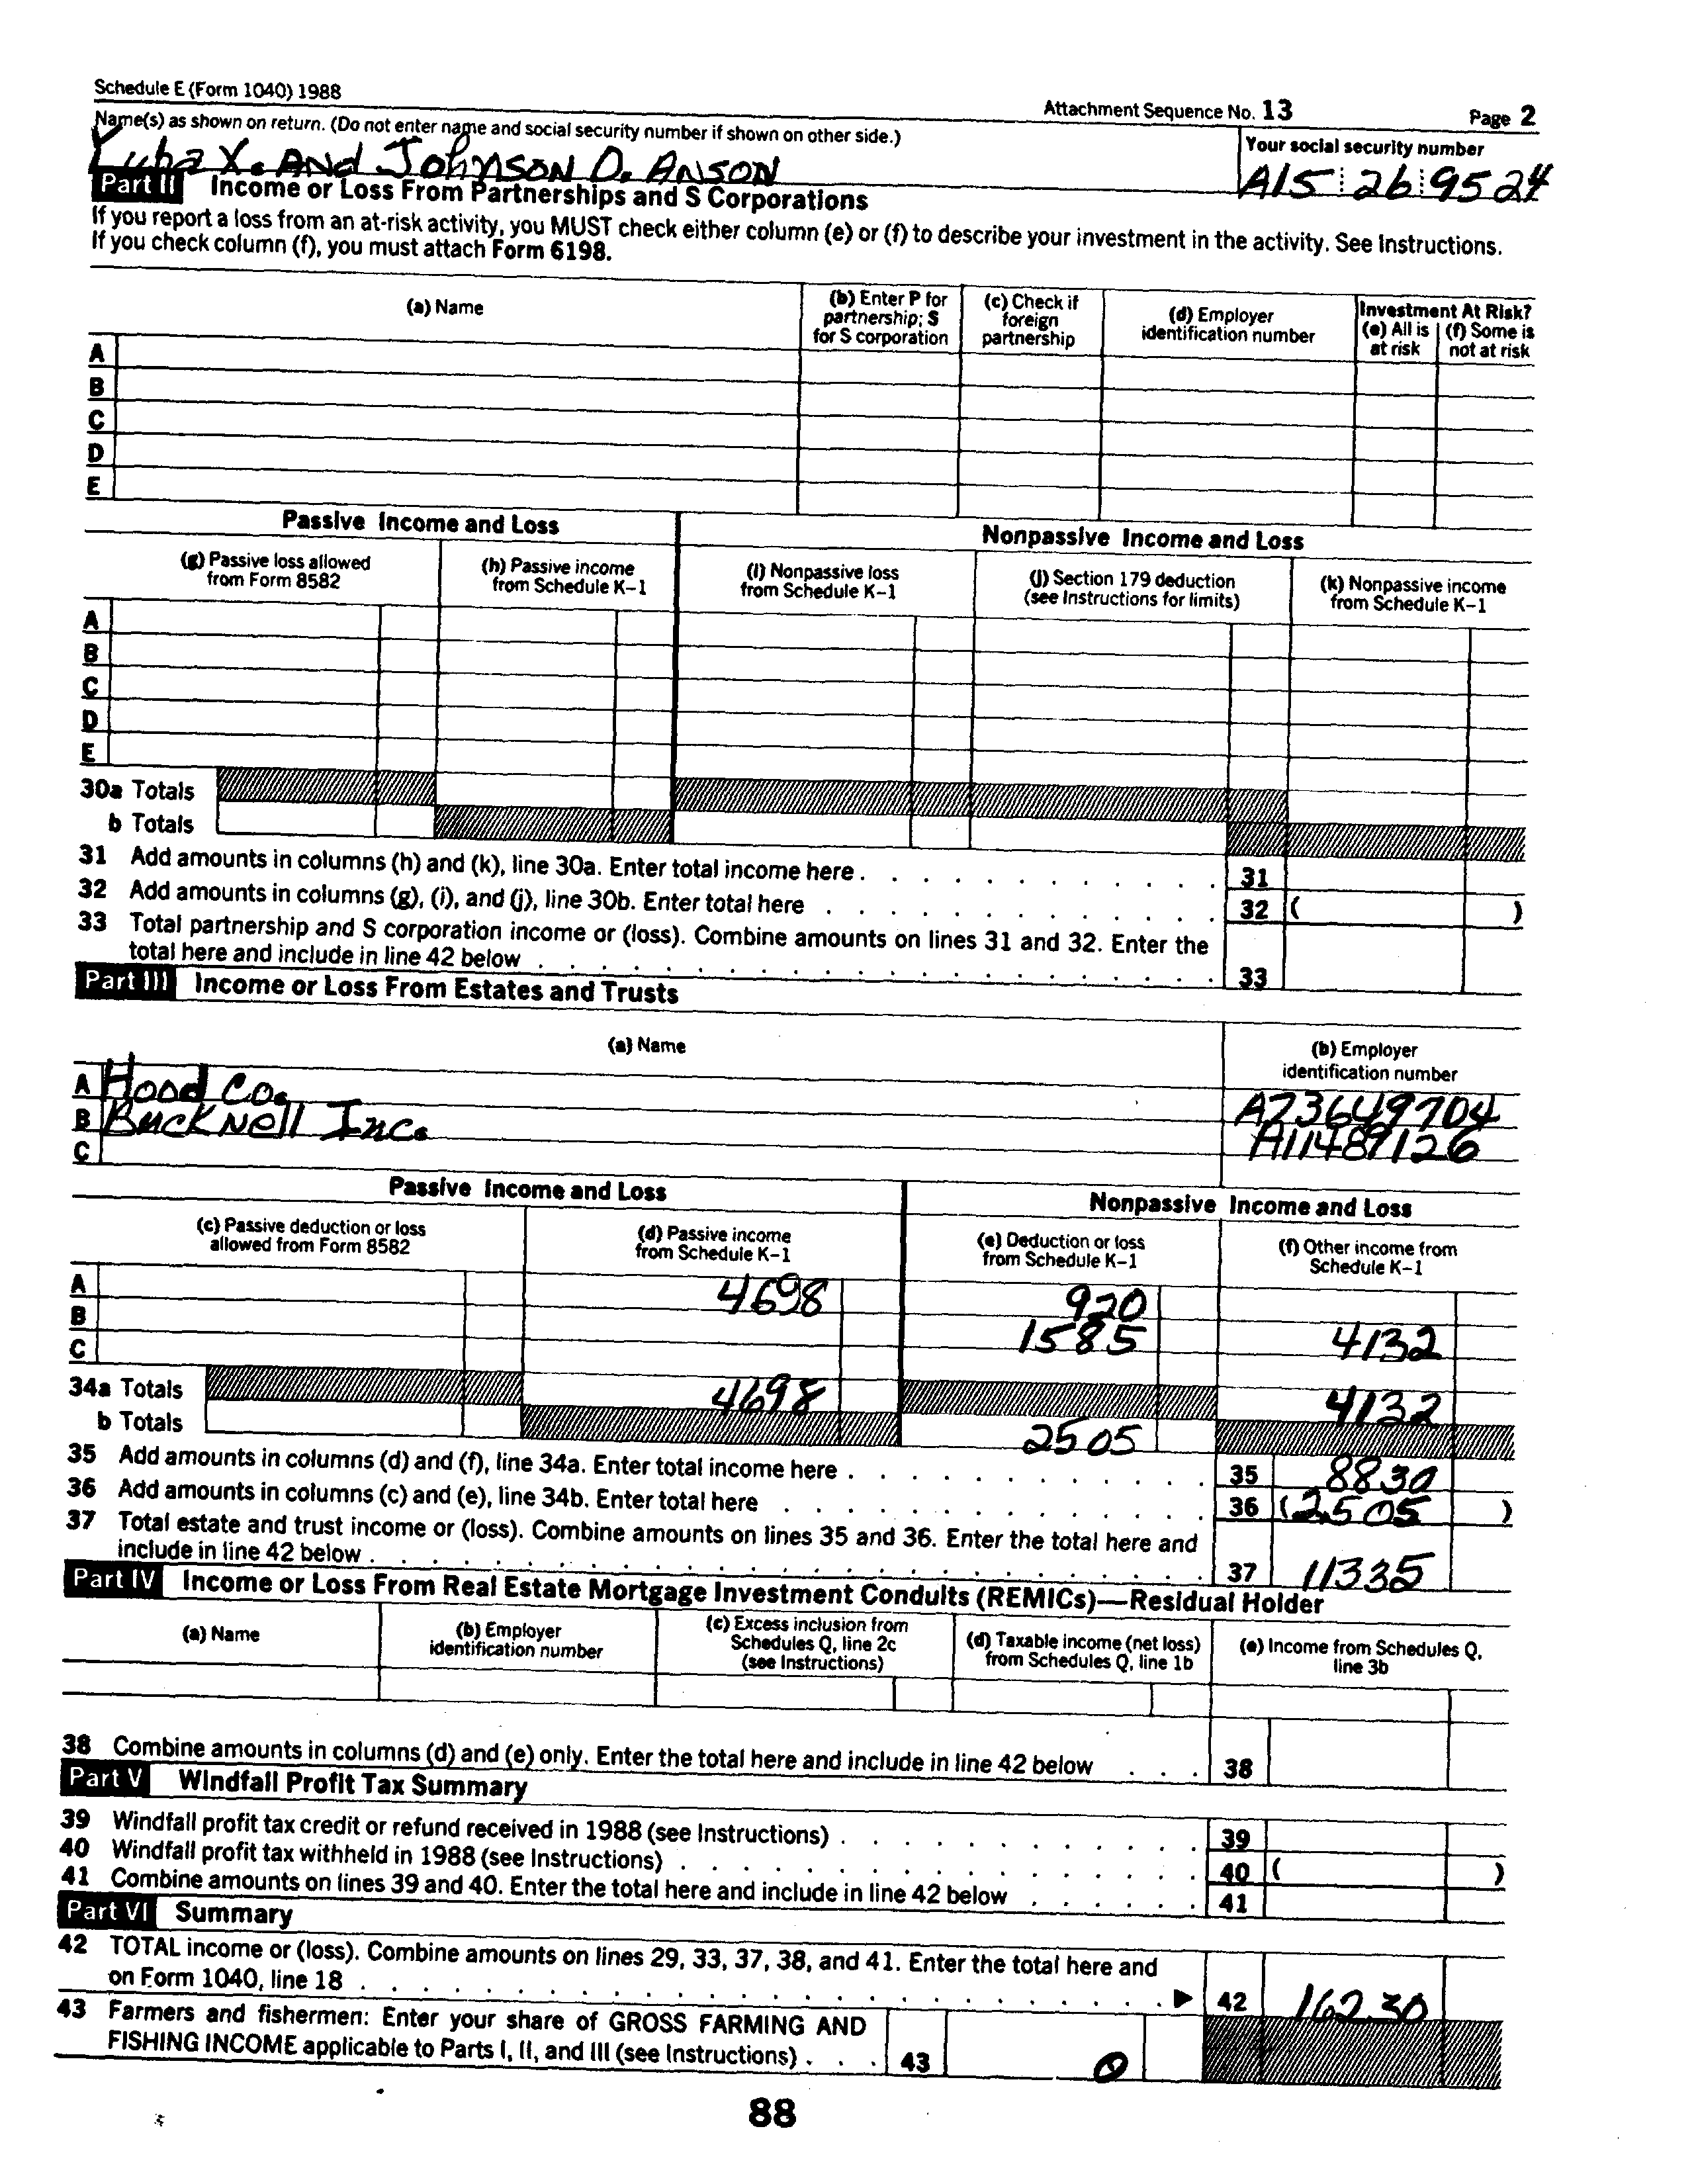 Schedule E (Form 1040) 1988
Attachment Sequence No. 13
Page 2
Name(s) as shown on return. (Do not enter name and social security number if shown on other side.)
Your social security number
X. And Johnson D. Anson
A15 26 9524
Part II Income or Loss From Partnerships and S Corporations
If you report a loss from an at-risk activity, you MUST check either column (e) or (f) to describe your investment in the activity. See Instructions.
If you check column (f), you must attach Form 6198.
(a) Name
(b) Enter P for partnership; S for S corporation
(c) Check if foreign partnership
(d) Employer identification number
Investment At Risk?
(e) All is at risk
(f) Some is not at risk
A
B
C
D
E
Passive Income and Loss
Nonpassive Income and Loss
(g) Passive loss allowed from Form 8582
(h) Passive income from Schedule K-1
(i) Nonpassive loss from Schedule K-1
(j) Section 179 deduction (see Instructions for limits)
(k) Nonpassive income from Schedule K-1
A
B
C
D
E
30a Totals
b Totals
31 Add amounts in columns (h) and (k), line 30a. Enter total income here . . . 31
32 Add amounts in columns (g), (i), and (j), line 30b. Enter total here . . . 32 ( )
33 Total partnership and S corporation income or (loss). Combine amounts on lines 31 and 32. Enter the
total here and include in line 42 below . . . 33
Part III Income or Loss From Estates and Trusts
(a) Name
(b) Employer identification number
A Hood Co. A73649704
B Bucknell Inc. A11489126
C
Passive Income and Loss
Nonpassive Income and Loss
(c) Passive deduction or loss allowed from Form 8582
(d) Passive income from Schedule K-1
(e) Deduction or loss from Schedule K-1
(f) Other income from Schedule K-1
A 4698 920
B 1585 4132
C
34a Totals 4698 4132
b Totals 2505
35 Add amounts in columns (d) and (f), line 34a. Enter total income here . . . 35 8830
36 Add amounts in columns (c) and (e), line 34b. Enter total here . . . 36 (2505 )
37 Total estate and trust income or (loss). Combine amounts on lines 35 and 36. Enter the total here and
include in line 42 below . . . 37 11335
Part IV Income or Loss From Real Estate Mortgage Investment Conduits (REMICs)—Residual Holder
(a) Name
(b) Employer identification number
(c) Excess inclusion from Schedules Q, line 2c (see Instructions)
(d) Taxable income (net loss) from Schedules Q, line 1b
(e) Income from Schedules Q, line 3b
38 Combine amounts in columns (d) and (e) only. Enter the total here and include in line 42 below . . . 38
Part V Windfall Profit Tax Summary
39 Windfall profit tax credit or refund received in 1988 (see Instructions) . . . 39
40 Windfall profit tax withheld in 1988 (see Instructions) . . . 40 ( )
41 Combine amounts on lines 39 and 40. Enter the total here and include in line 42 below . . . 41
Part VI Summary
42 TOTAL income or (loss). Combine amounts on lines 29, 33, 37, 38, and 41. Enter the total here and
on Form 1040, line 18 . . . ▶ 42 16230
43 Farmers and fishermen: Enter your share of GROSS FARMING AND
FISHING INCOME applicable to Parts I, II, and III (see Instructions) . . . 43 0
88